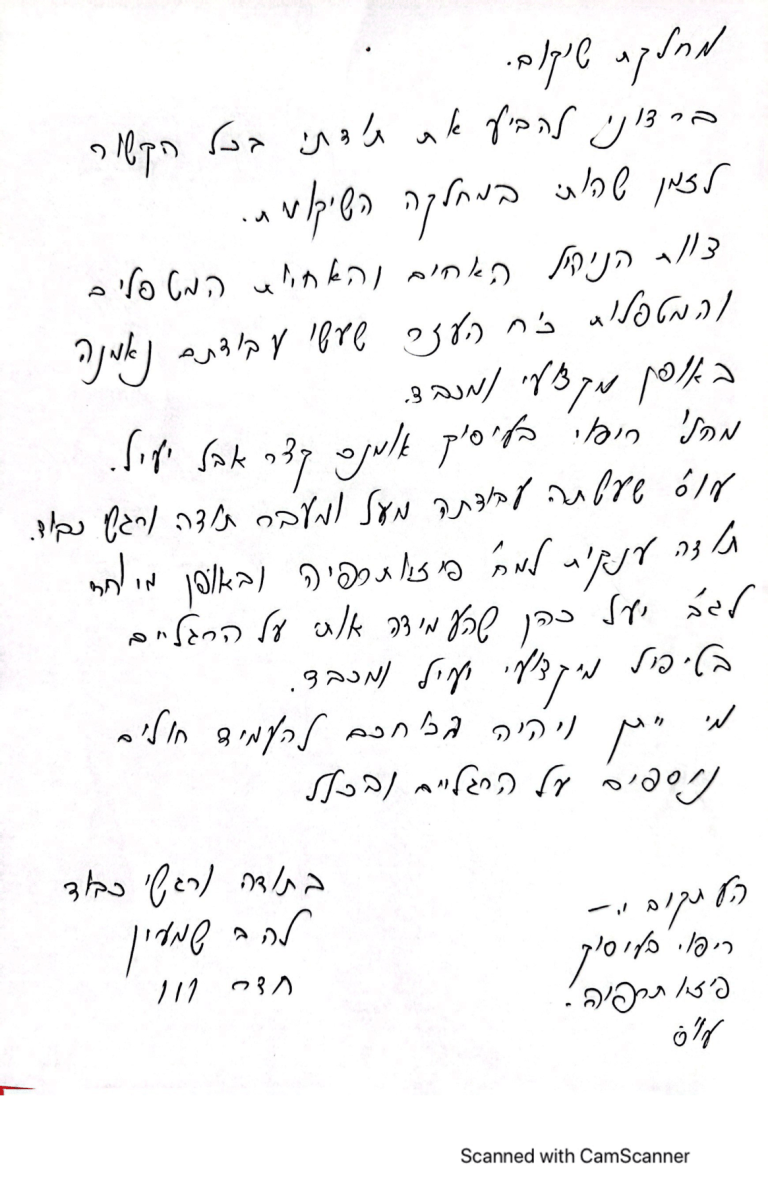 מחלקת שיקום.
ברצוני להביע את תודתי בכל הקשור
לזמן שהותי במחלקה השיקומית.
צוות הניהול האחים והאחיות המטפלים
והמטפלות כ"ח העזר שעשו עבודתם נאמנה
באופן מקצועי ומכבד.
מהלי ריפוי בעיסוק אומנם קצר אבל יעיל.
עו"ס שעשתה עבודתה מעל ומעבר תודה ורגשי כבוד.
תודה ענקית למח' פיזיותרפיה ובאופן מיוחד
לגב' יעל כהן שהעמידה אותי על הרגליים
בטיפול מיקצועי יעיל ומכבד.
מי ייתן ויהיה בכוחכם להעמיד חולים
נוספים על הרגליים ובכלל
בתודה ורגשי כבוד
להב שמעון
חדר 111
העתקים :-
ריפוי בעיסוק
פיזיותרפיה.
עו"ס
Scanned with CamScanner